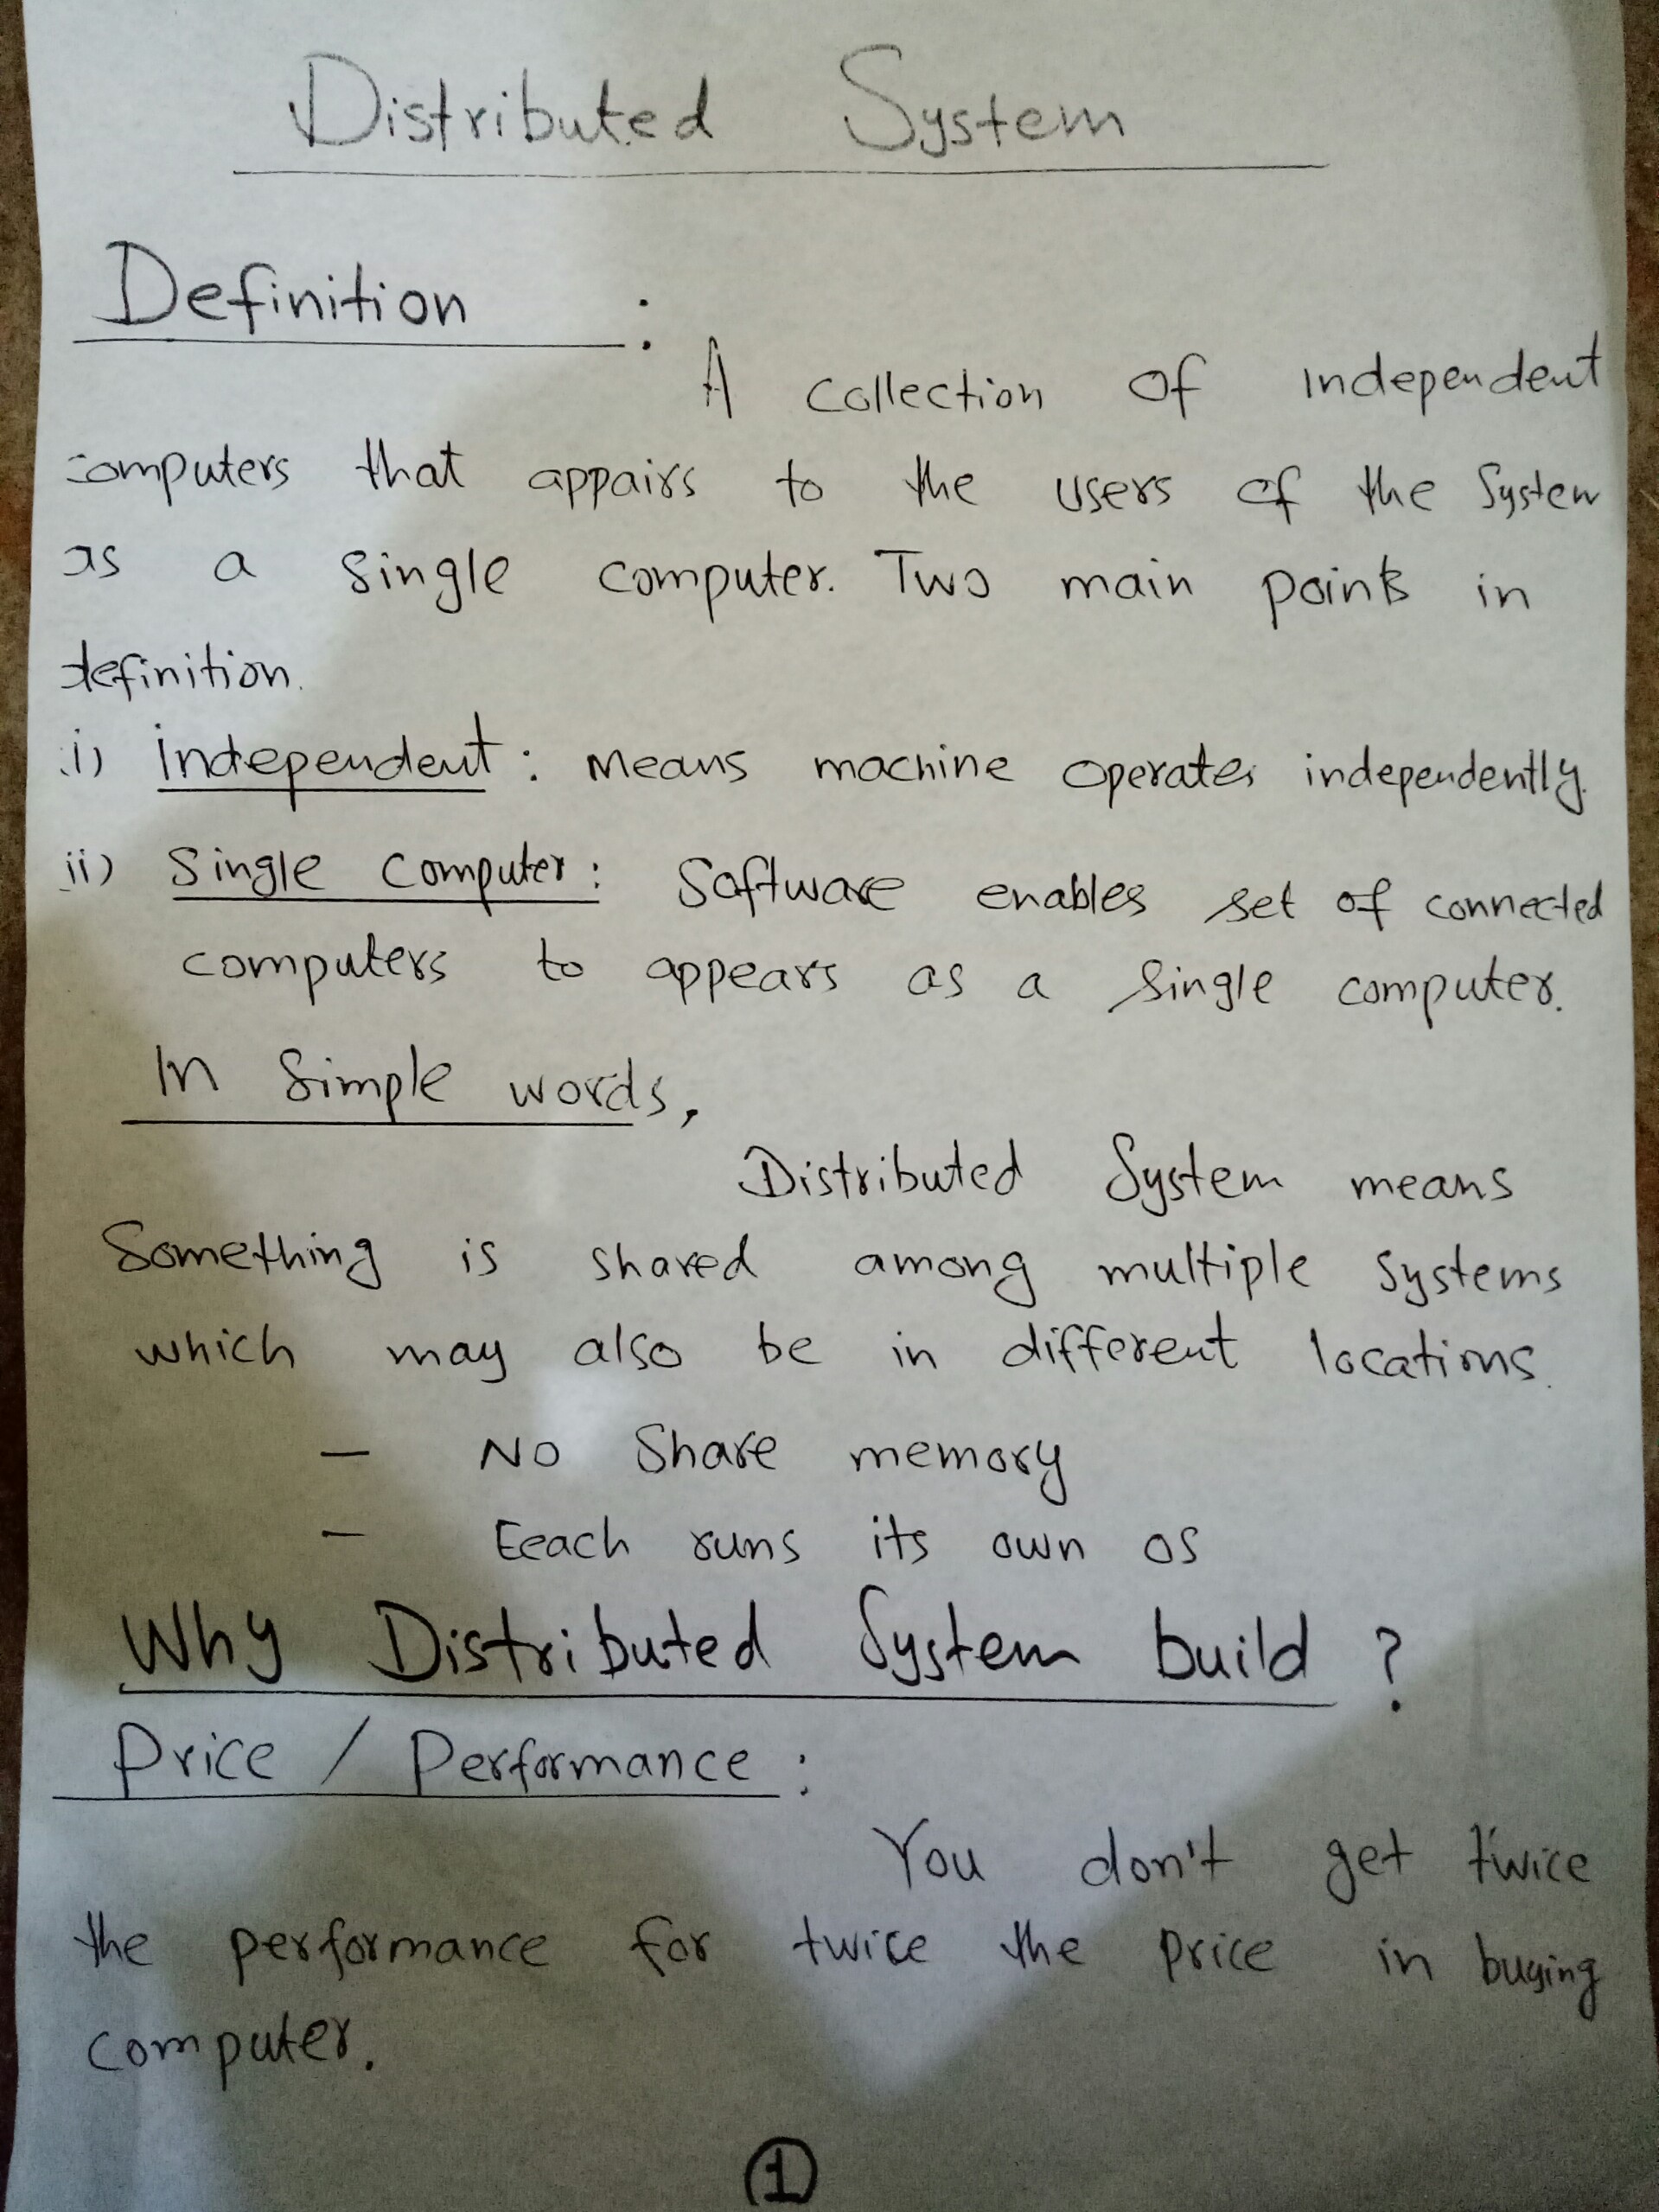 Distributed System
Definition :
A collection of independent
computers that appairs to the users of the System
as a single computer. Two main points in
definition.
i) independent : Means machine operates independently.
ii) Single Computer : Software enables set of connected
computers to appears as a single computer.
In Simple words,
Distributed System means
Something is shared among multiple systems
which may also be in different locations.
— No Share memory
— Eeach runs its own os
Why Distributed System build ?
Price / Performance :
You don't get twice
the performance for twice the price in buying
computer.
1